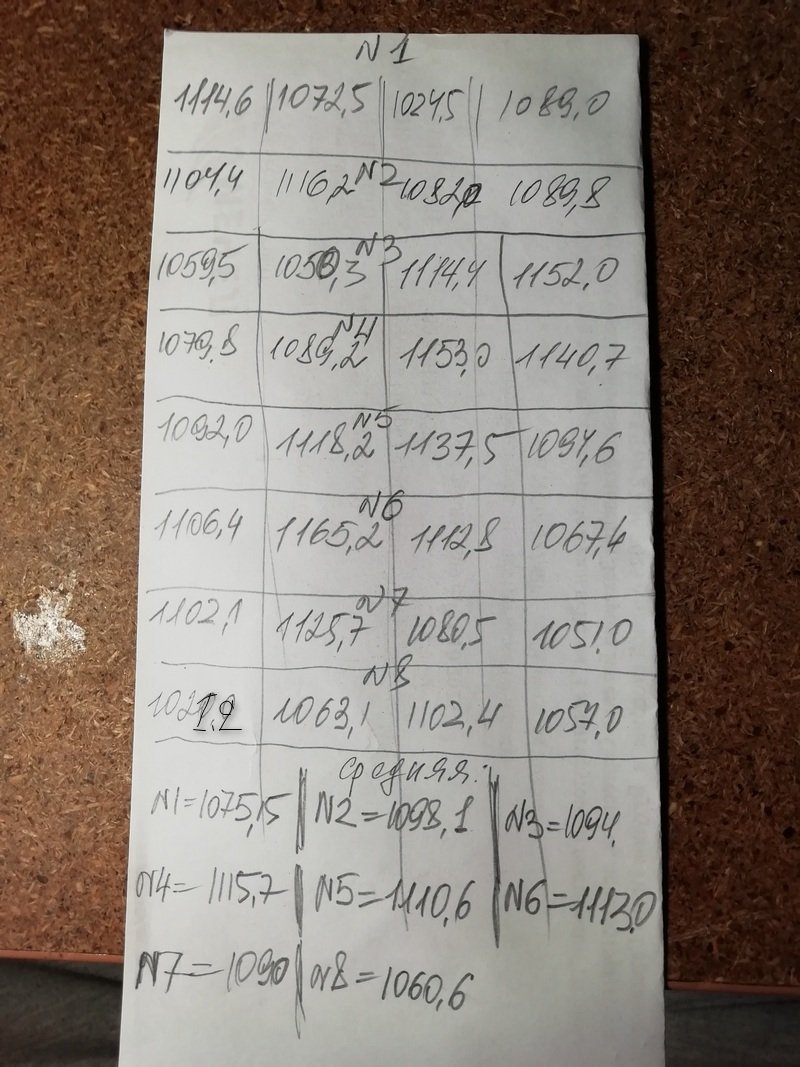 N1
1114,6 1072,5 1024,5 1089,0
N2
1104,4 1116,2 1082,2 1089,8
N3
1059,5 1050,3 1114,4 1152,0
N4
1079,8 1089,2 1153,0 1140,7
N5
1092,0 1118,2 1137,5 1094,6
N6
1106,4 1165,2 1112,8 1067,4
N7
1102,1 1125,7 1080,5 1051,0
N8
1021,2 1063,1 1102,4 1057,0
средняя:
N1=1075,15 N2=1098,1 N3=1094,
N4=1115,7 N5=1110,6 N6=1113,0
N7=1090 N8=1060,6